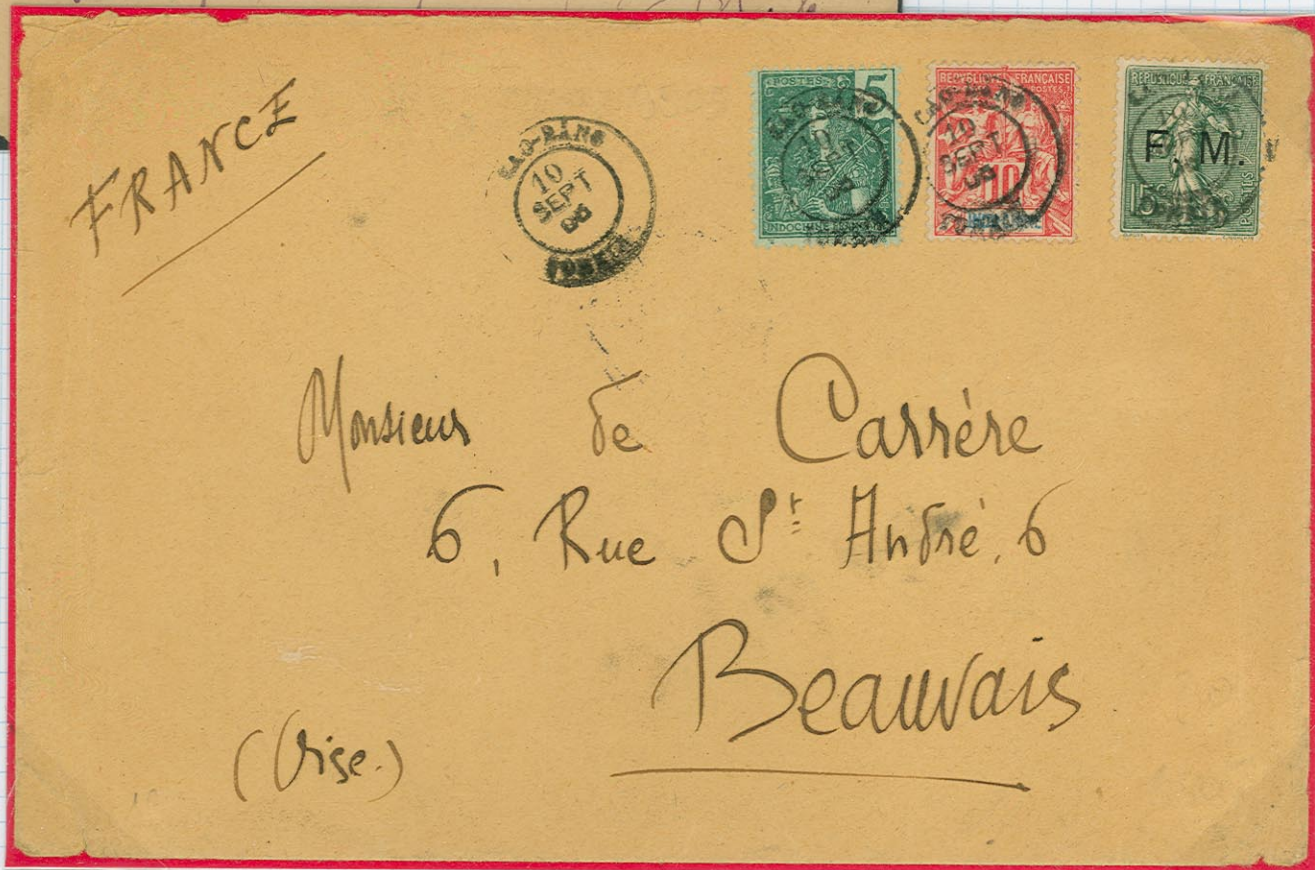 FRANCE
CAO-BANG
10
SEPT
TONKIN
POSTES 5
INDOCHINE
CAO-BANG
10
SEPT
REPUBLIQUE FRANÇAISE
POSTES
10
CAO-BANG
10
SEPT
REPUBLIQUE FRANÇAISE
F. M.
15c
POSTES
Monsieur de Carrère
6, Rue St André, 6
Beauvais
(Oise.)